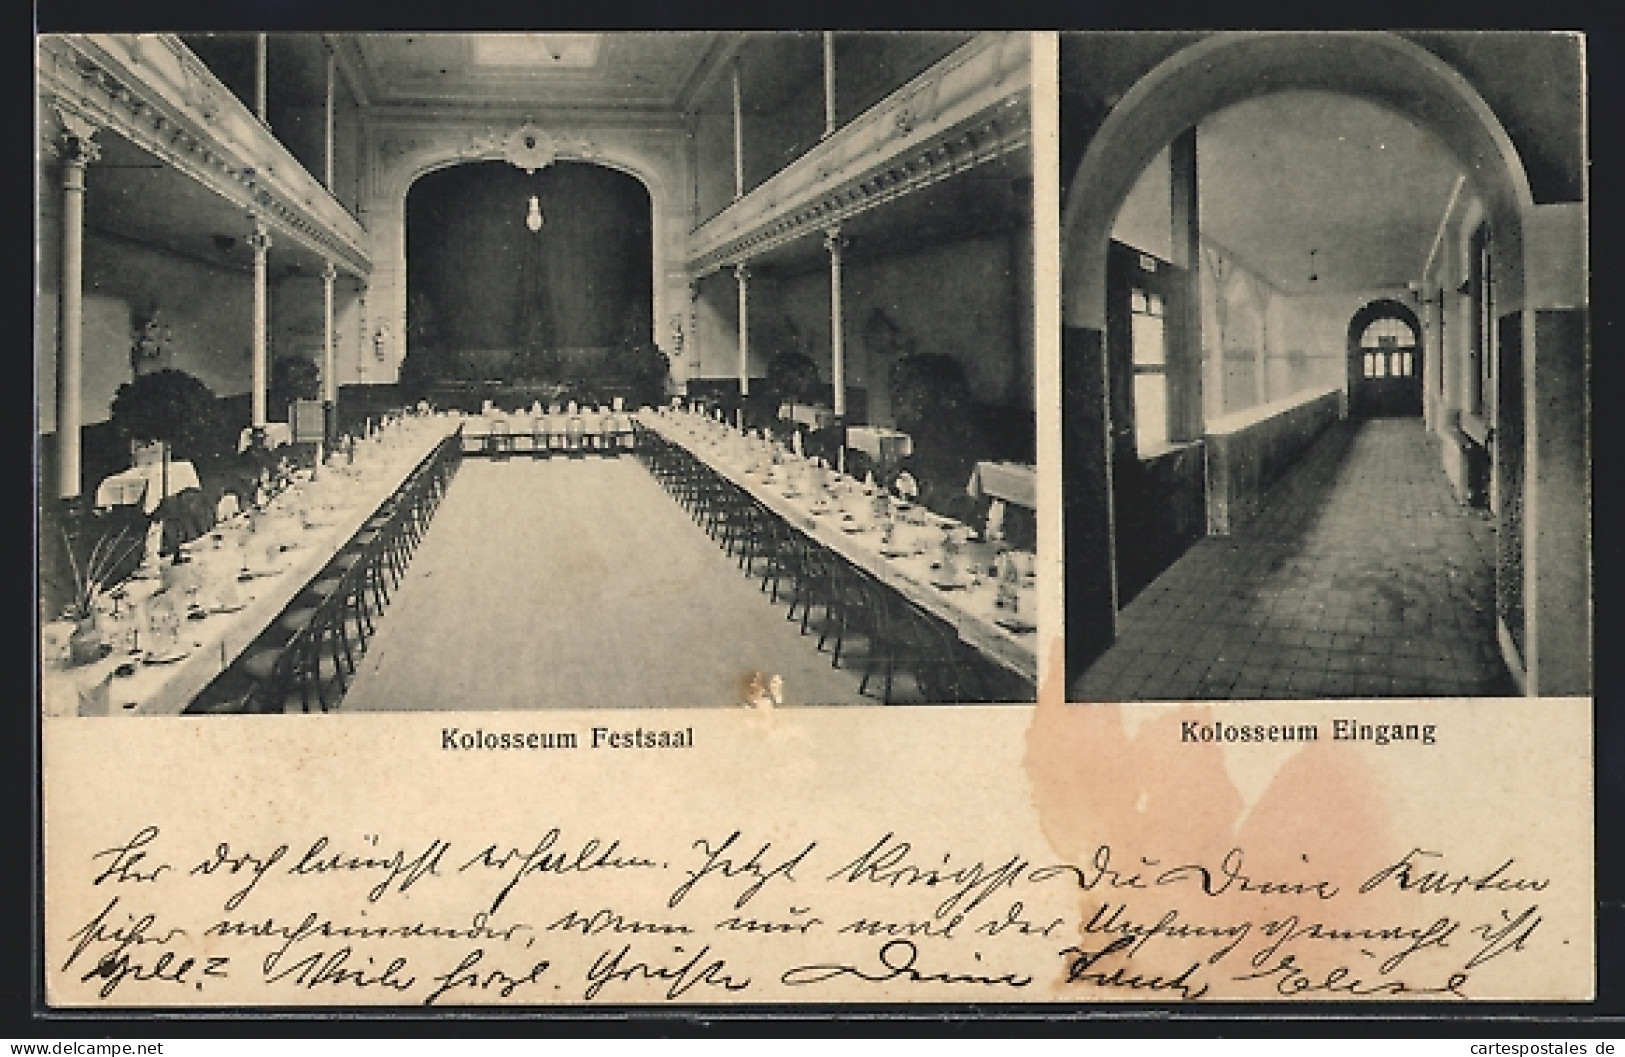 Kolosseum Festsaal
Kolosseum Eingang
doch längst erhalten. Jetzt kriegst Du Deine Karten
sicher nacheinander, wenn nur mal der Anfang gemacht ist.
Gell? Viele herzl. Grüße Deine Tante Elise
cartespostales.de